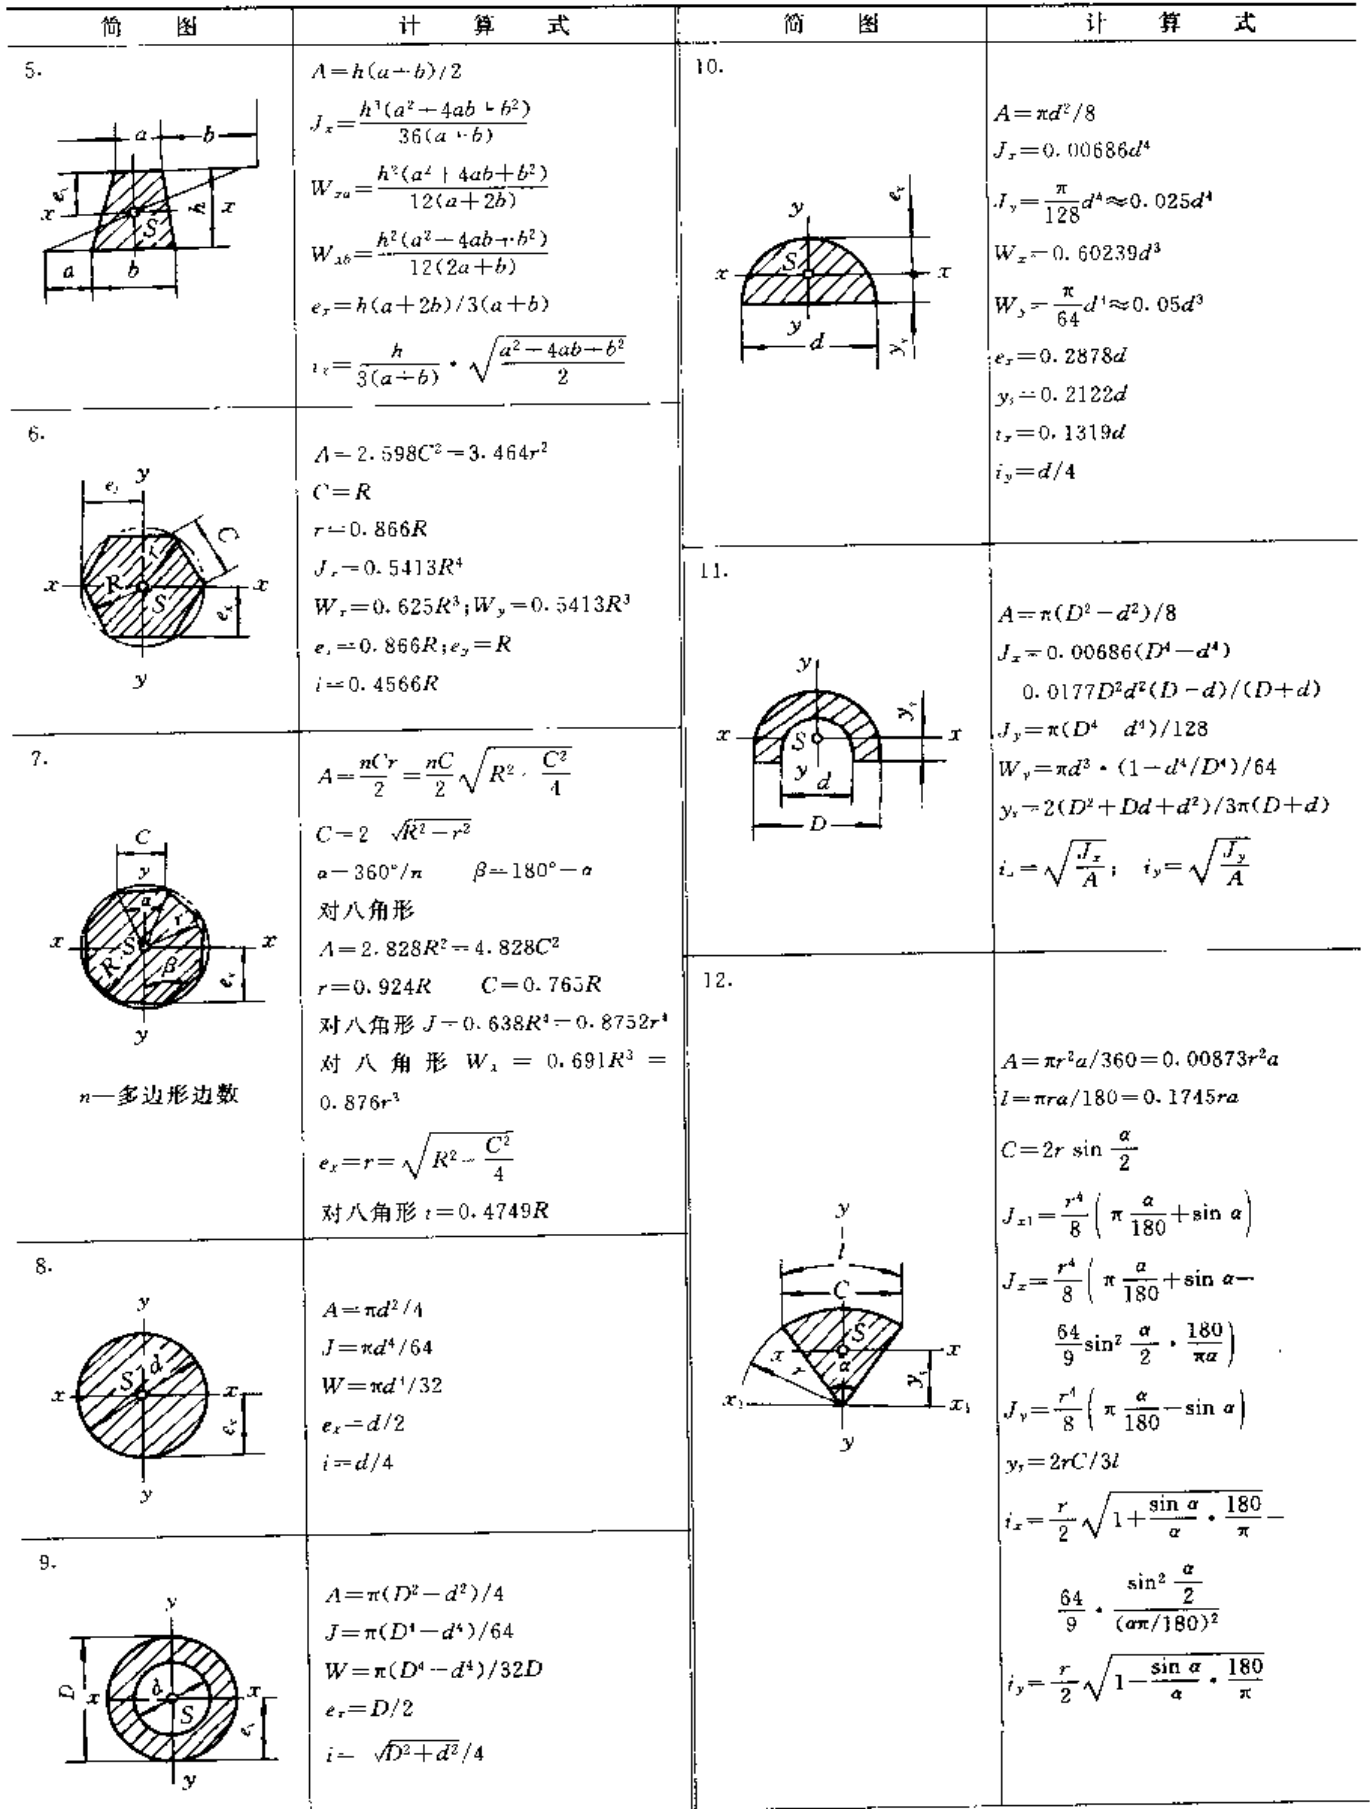 简 图 计 算 式 简 图 计 算 式
5.
a b
e_x x h x
S
a b
A=h(a+b)/2
J_x=h³(a²+4ab+b²)/36(a+b)
W_xa=h²(a²+4ab+b²)/12(a+2b)
W_xb=h²(a²+4ab+b²)/12(2a+b)
e_x=h(a+2b)/3(a+b)
i_x=h/3(a+b)·√((a²+4ab+b²)/2)
6.
e_y y
C
r
x R S x
e_x
y
A=2.598C²=3.464r²
C=R
r=0.866R
J_x=0.5413R⁴
W_x=0.625R³;W_y=0.5413R³
e_x=0.866R;e_y=R
i=0.4566R
7.
C
y
α
r
x S x
R β e_x
y
n—多边形边数
A=nCr/2=nC/2 √(R²-C²/4)
C=2 √(R²-r²)
α=360°/n β=180°-α
对八角形
A=2.828R²=4.828C²
r=0.924R C=0.765R
对八角形 J=0.638R⁴=0.8752r⁴
对 八 角 形 W_x = 0.691R³ =
0.876r³
e_x=r=√(R²-C²/4)
对八角形 i=0.4749R
8.
y
d
x S x
e_x
y
A=πd²/4
J=πd⁴/64
W=πd³/32
e_x=d/2
i=d/4
9.
y
D x d x
S e_x
y
A=π(D²-d²)/4
J=π(D⁴-d⁴)/64
W=π(D⁴-d⁴)/32D
e_x=D/2
i= √(D²+d²)/4
10.
y e_x
x S x
y
d y_s
A=πd²/8
J_x=0.00686d⁴
J_y=π/128 d⁴≈0.025d⁴
W_x=0.60239d³
W_y=π/64 d³≈0.05d³
e_x=0.2878d
y_s=0.2122d
i_x=0.1319d
i_y=d/4
11.
y
y_s
x S x
y d
D
A=π(D²-d²)/8
J_x=0.00686(D⁴-d⁴)
0.0177D²d²(D-d)/(D+d)
J_y=π(D⁴ d⁴)/128
W_y=πd³·(1-d⁴/D⁴)/64
y_s=2(D²+Dd+d²)/3π(D+d)
i_x=√(J_x/A); i_y=√(J_y/A)
12.
y
l
C
S
x x
r α y_s
x₁ x₁
y
A=πr²α/360=0.00873r²α
l=πrα/180=0.1745rα
C=2r sin α/2
J_x1=r⁴/8(π α/180+sin α)
J_x=r⁴/8(π α/180+sin α-
64/9 sin² α/2·180/πα)
J_y=r⁴/8(π α/180-sin α)
y_s=2rC/3l
i_x=r/2 √(1+sin α/α·180/π-
64/9·sin² α/2/(απ/180)²
i_y=r/2 √(1-sin α/α·180/π)